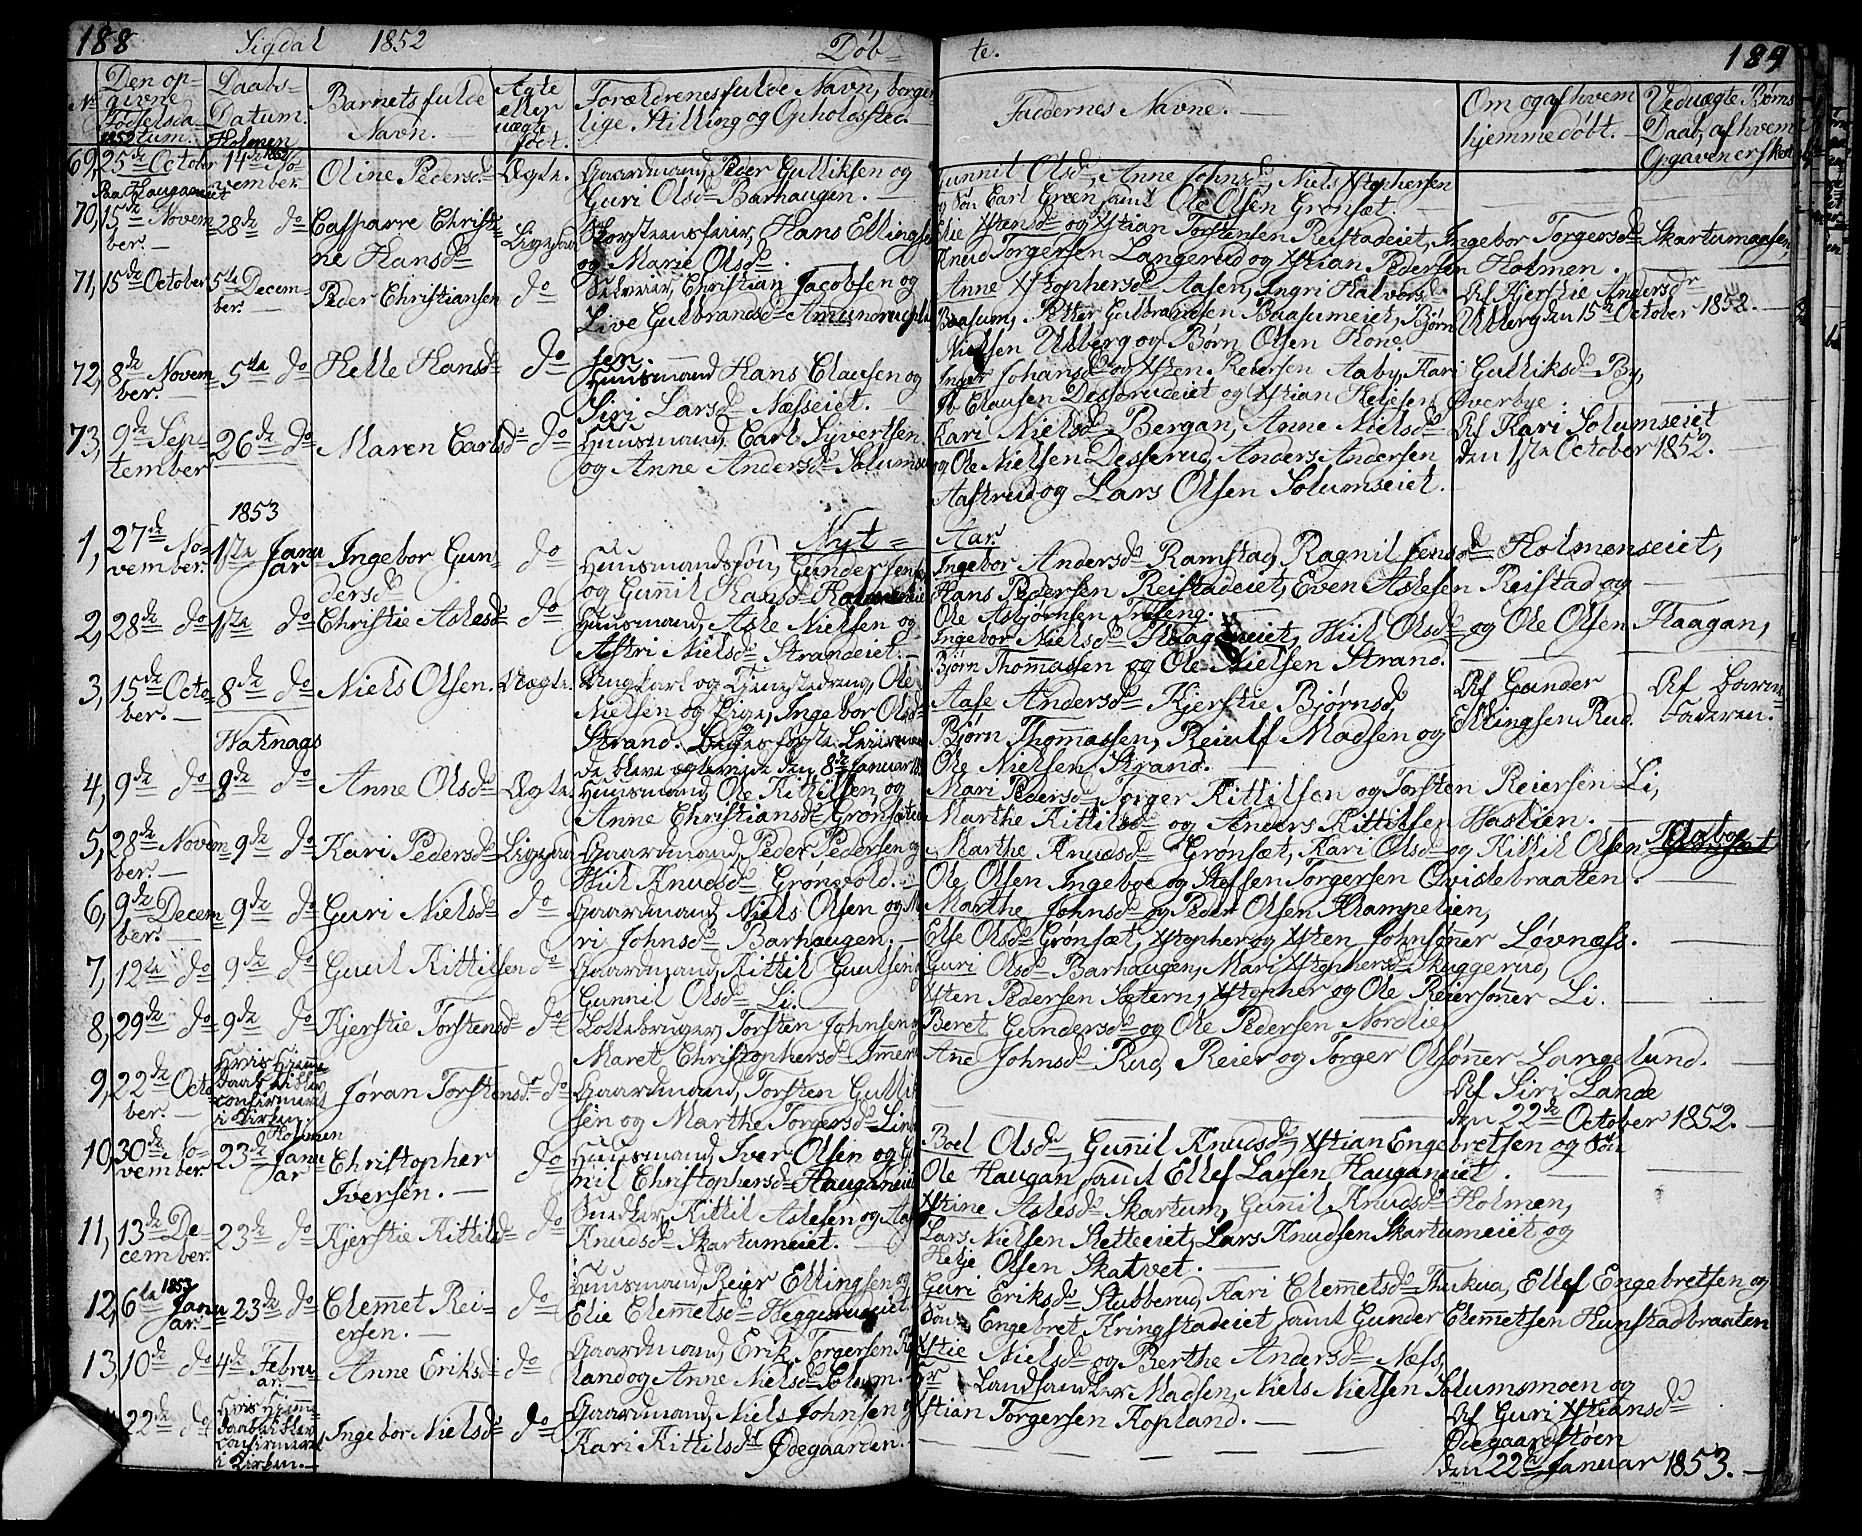 188 Sigdal 1852 Døb- te. 189
No Den opgivne Fødselsdatum. 1852 Daabs-Datum. Holmen Barnets fulde Navn. Ægte eller uægte født. Forældrenes fulde Navn, borgerlige Stilling og Opholdsted. Faddernes Navne. Om og af hvem hjemmedøbt. Ved uægte Børns Daab, af hvem Opgaven er skeet
69, 25de October 14de November. Oline Pedersd. Ægte. Gaardmand, Peder Gulliksen og Gunnil Olsd, Anne Johnsd, Niels Xstophersen
Guri Olsd Barhaugen. og Søn Carl Green samt Ole Olsen Grønsæt.
70, 15de November. 28de do Casparre Christine Hansd Ligesaa Skorsteensfeier, Hans Ellingsen Elie Xstensd og Xstian Torstensen Reistadeiet, Ingebor Torgersd Skartumaasen,
og Marie Olsd. Knud Torgersen Langerud og Xstian Pedersen Holmen.
71, 15de October 5te December. Peder Christiansen do Selveier, Christian Jacobsen og Anne Xstophersd Aasen, Ingri Halvorsd Af Kjerstie Andersdr
Live Gulbrandsd Amundrud Baasum, Petter Gulbrandsen Baasumeiet, Bjørn Ulberg den 15de October 1852.
Nielsen Ulberg og Børn Olsen Hone.
72, 8de November. 5te do Helle Hansd do Huusmand Hans Clausen og Inger Johansd og Xsten Reiersen Aaby, Kari Gulliksd By,
Siri Larsd Næsseiet. Ib Clausen Desseruðeiet og Xstian Heljesen Øverbye.
73, 9de September 26de do Maren Carlsd do Huusmand, Carl Syvertsen Kari Nielsd Bergan, Anne Nielsd Af Kari Solumseiet
og Anne Andersd Solumseiet og Ole Nielsen Desserud, Anders Andersen den 1ste October 1852.
Aastrud og Lars Olsen Solumseiet.
1853 Nyt= Aar
1, 27de November 1ste Januar Ingebor Gundersd do Huusmandssøn, Gunder Ingebor Andersd Ramstad, Ragnil Jensd Holmenseiet,
og Gunnil Hansd Hans Pedersen Reistadeiet, Even Aslesen Reistad og
Ole Asbjørnsen Tufseng.
2, 28de do 1ste do Christie Aslesd do Huusmand, Asle Nielsen og Ingebor Nielsd Haaganeiet, Hiil Olsd og Ole Olsen Haagan,
Astri Nielsd Strandeiet. Bjørn Thomassen og Ole Nielsen Strand.
3, 15de October. 8de do Niels Olsen. Uægte. Ungkarl og Tjenestedreng, Ole Aase Andersd Kjerstie Bjørnsd, Af Gunder Af Barnefaderen.
Nielsen og Pige, Ingebor Olsd Bjørn Thomassen, Reiulf Madsen og Ellingsen Rud.
Strand. Begges første Leiermaal Ole Nielsen Strand.
de bleve ægteviede den 8de Januar
Vatnaas
4, 9de do 9de do Anne Olsd Ægte. Huusmand, Ole Kittilsen, og Mari Pedersd Torger Kittilsen og Torsten Reiersen Li,
Anne Christiansd Grønsæteiet Marthe Kittilsd og Anders Kittilsen Haslien.
5, 28de November. 9de do Kari Pedersd Ligesaa Gaardmand, Peder Pedersen og Marthe Knudsd Grønsæt, Kari Olsd og Kittil Olsen
Hiil Knudsd Grønvold. Ole Olsen Ingeboe og Steffen Torgersen Qvistebraaten.
6, 9de December. 9de do Guri Nielsd do Gaardmand, Niels Olsen og Mari Johnsd Barhaugen. Marthe Johnsd og Peder Olsen Krampelien,
Else Olsd Grønsæt, Xstopher og Xsten Johnsønner Løvnæss.
7, 12te do 9de do Guul Kittilsen do Gaardmand, Kittil Guulsen og Guri Olsd Barhaugen, Mari Xstophersd Skuggerud,
Gunnil Olsd Li. Xsten Pedersen Sætern, Xstopher og Ole Reiersønner Li.
8, 29de do 9de do Kjerstie Torstensd do Lottebruger, Torsten Johnsen og Beret Gundersd og Ole Pedersen Nordlie,
Maret Christophersd Immern Ane Johnsd Rud, Reier og Torger Olsønner Langelund.
9, 22de October. Hvis Hjemmedaab bliver confirmeret i Kirken. Jøran Torstensd. do Gaardmand, Torsten Gulliksen og Marthe Torgersd Af Siri Lande
den 22de October 1852.
Holmen
10, 30de November 23de Januar Christopher Iversen. do Huusmand, Iver Olsen og Gunnil Christophersd Hauganeiet Boel Olsd, Gunnil Knudsd, Xstian Engebretsen og Søn
Ole Haugan samt Ellef Larsen Hauganeiet.
11, 13de December. 23de do Kjerstie Kittilsd do Snedker, Kittil Aslesen og Xstine Aslesd Skartum, Gunnil Knudsd Holmen,
Knudsd Skartumeiet. Lars Nielsen Stetteeiet, Lars Knudsen Skartumeiet og
Helje Olsen Skatvet.
12, 6te Januar 1853 23de do Clemmet Reiersen. do Huusmand, Reier Ellingsen og Guri Eriksd Stubberud, Kari Clemmetsd Thukua, Ellef Engebretsen og
Elie Clemmetsd Heggerudeiet. Søn Engebret Kringstadeiet samt Gunder Clemmetsen Hunstadbraaten
13, 10de do 4de Februar. Anne Eriksd do Gaardmand, Erik Torgersen Kopland og Anne Nielsd Solum. Xstie Nielsd og Berthe Andersd Næss,
Hr Landhandler Madsen, Niels Nielsen Solumsmoen og
Xstian Torgersen Kopland.
22de do Hvis Hjemmedaab bliver confirmeret i Kirken. Ingebor Nielsd do Gaardmand, Niels Johnsen og Af Guri Xstiansd
Kari Kittilsd Ødegaarden. Ødegaardstøen
den 22de Januar 1853.